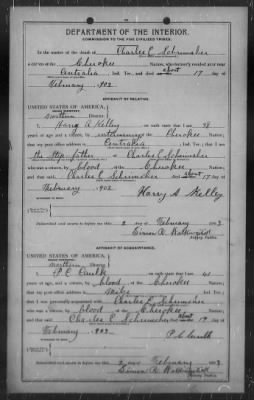 DEPARTMENT OF THE INTERIOR.
COMMISSION TO THE FIVE CIVILIZED TRIBES.
In the matter of the death of Charles C Schrimsher
a citizen of the Cherokee Nation, who formerly resided at or near
Centralia, Ind. Ter., and died about 17 day of
February, 1902
AFFIDAVIT OF RELATIVE.
UNITED STATES OF AMERICA,
INDIAN TERRITORY,
Northern District.
I, Harry A Kelley on oath state that I am 48
years of age and a citizen by intermarriage of the Cherokee Nation;
that my post office address is Centralia, Ind. Ter.; that I am
the step father of Charles C Schrimsher
who was a citizen, by blood of the Cherokee Nation;
and that said Charles C Schrimsher died about 17 day of
February, 1902
Harry A Kelley
Subscribed and sworn to before me this 2 day of February 1903
Notary Public.
AFFIDAVIT OF ACQUAINTANCE.
UNITED STATES OF AMERICA,
INDIAN TERRITORY,
Northern District.
I, P. C. Caulk on oath state that I am 41
years of age, and a citizen by blood of the Cherokee Nation;
that my post office address is Ind. Ter.;
that I was personally acquainted with Charles C Schrimsher
who was a citizen, by blood of the Cherokee Nation;
and that said Charles C Schrimsher died about 17 day of
February, 1902
P. C. Caulk
Subscribed and sworn to before me this 2 day of February 1903
Notary Public.